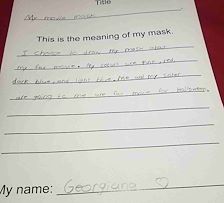 Title
My movie mask
This is the meaning of my mask.
I choose to draw my mask about
my fav movie. My colors are Pink, red,
dark blue, and light blue. Me and my sister
are going to me are fav movie for halloween.
My name: Georgiana ♡